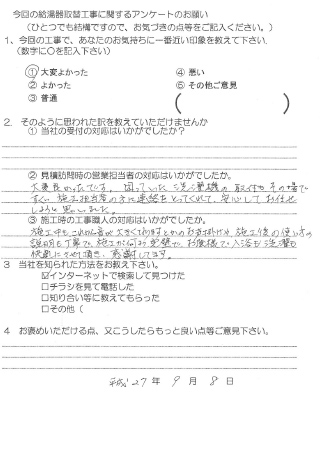 今回の給湯器取替工事に関するアンケートのお願い
（ひとつでも結構ですので、お気づきの点等をご記入ください。）
1、今回の工事で、あなたのお気持ちに一番近い印象を教えて下さい。
（数字に○を記入下さい）
① 大変よかった ④ 悪い
② よかった ⑥ その他ご意見
③ 普通 （ ）
2. そのように思われた訳を教えていただけませんか
① 当社の受付の対応はいかがでしたか？
② 見積訪問時の営業担当者の対応はいかがでしたか。
大変良かったです。困っていた洗濯機の取付もその場で
すぐ、施工担当者の方に連絡をとってくれて、安心してお任せ
しようと思いました。
③ 施工時の工事職人の対応はいかがでしたか。
施工中もこれから音が大きくなりますとかのお声掛けや、施工後の使い方の
説明も丁寧で、施工が何より完璧で、お陰様で入浴も洗濯も
快適にさせて頂き、感謝してます。
3 当社を知られた方法をお教え下さい。
☑インターネットで検索して見つけた
□チラシを見て電話した
□知り合い等に教えてもらった
□その他（
4 お褒めいただける点、又こうしたらもっと良い点等ご意見下さい。
平成27年 9月 8日